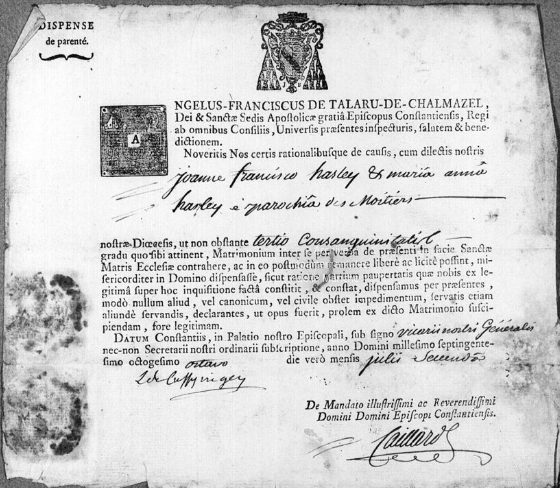 DISPENSE
de parenté.
ANGELUS-FRANCISCUS DE TALARU-DE-CHALMAZEL,
Dei & Sanctæ Sedis Apostolicæ gratiâ Episcopus Constantiensis, Regi
ab omnibus Consiliis, Universis præsentes inspecturis, salutem & bene-
dictionem.
Noveritis Nos certis rationalibusque de causis, cum dilectis nostris
joanne francisco hasley & maria anna
hasley è parochia des Mortiers
nostræ Diœcesis, ut non obstante tertio Consanguinitatis
gradu quo sibi attinent, Matrimonium inter se per verba de præsenti in facie Sanctæ
Matris Ecclesiæ contrahere, ac in eo postmodum remanere liberè ac licitè possint, mi-
sericorditer in Domino dispensasse, sicut ratione partium paupertatis quæ nobis ex le-
gitima super hoc inquisitione factâ constitit, & constat, dispensamus per præsentes,
modò nullum aliud, vel canonicum, vel civile obstet impedimentum, servatis etiam
aliundè servandis, declarantes, ut opus fuerit, prolem ex dicto Matrimonio susci-
piendam, fore legitimam.
DATUM Constantiis, in Palatio nostro Episcopali, sub signo vicarii nostri Generalis
nec-non Secretarii nostri ordinarii subscriptione, anno Domini millesimo septingente-
simo octogesimo octavo die verò mensis julii Secunda
De Mandato illustrissimi ac Reverendissimi
Domini Domini Episcopi Constantiensis.
Caillard